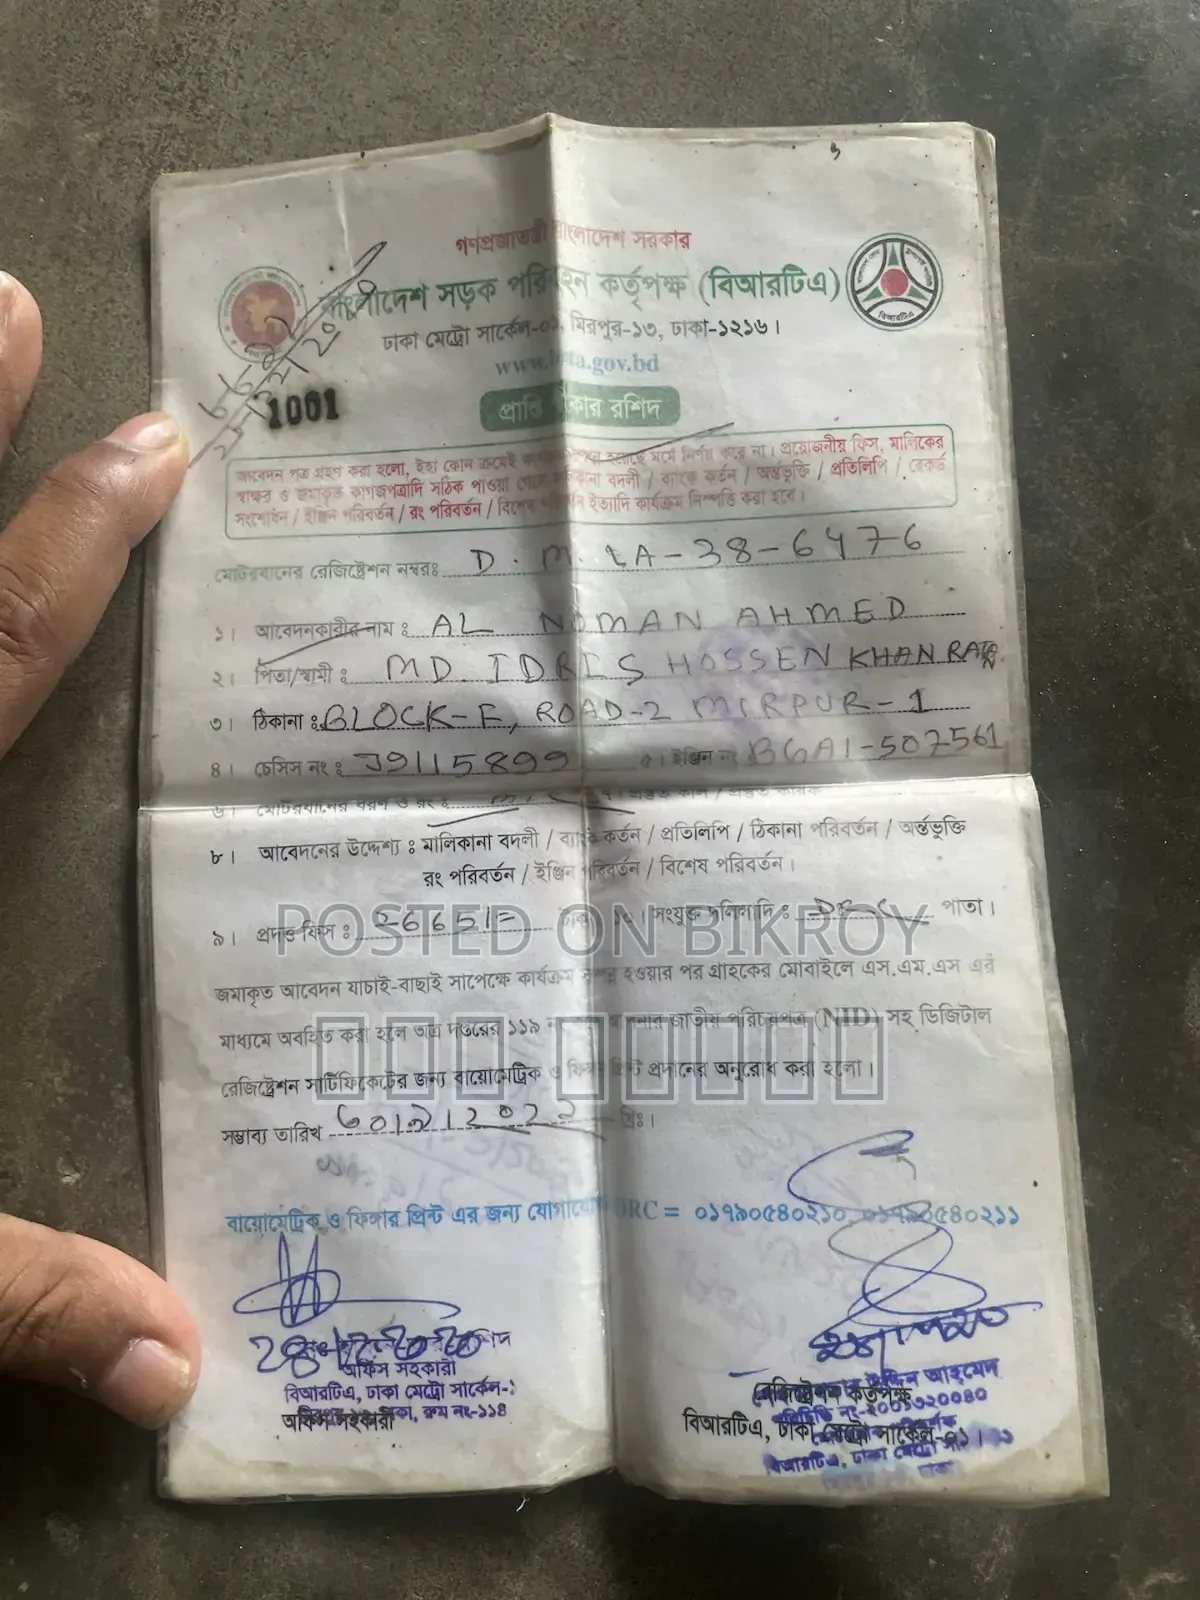 গণপ্রজাতন্ত্রী বাংলাদেশ সরকার
বাংলাদেশ সড়ক পরিবহন কর্তৃপক্ষ (বিআরটিএ)
ঢাকা মেট্রো সার্কেল-০১, মিরপুর-১৩, ঢাকা-১২১৬।
www.brta.gov.bd
1001
প্রাপ্তি স্বীকার রশিদ
আবেদন পত্র গ্রহণ করা হলো, ইহা কোন ক্রমেই হয়েছে মর্মে নির্ণয় করে না। প্রয়োজনীয় ফিস, মালিকের
স্বাক্ষর ও জমাকৃত কাগজপত্রাদি সঠিক পাওয়া গেলে মালিকানা বদলী / ব্যাংক কর্তন / অর্ন্তভুক্তি / প্রতিলিপি / রেকর্ড
সংশোধন / ইঞ্জিন পরিবর্তন / রং পরিবর্তন / বিশেষ পরিবর্তন ইত্যাদি কার্যক্রম নিষ্পত্তি করা হবে।
মোটরযানের রেজিষ্ট্রেশন নম্বরঃ D. M. LA-38-6476
১। আবেদনকারীর নাম : AL NOMAN AHMED
২। পিতা/স্বামী : MD. IDRIS HOSSEN KHAN
৩। ঠিকানা : BLOCK-F, ROAD-2 MIRPUR-1
৪। চেসিস নং : J9115899 ৫। ইঞ্জিন নং BGA1-507561
৬। মোটরযানের ধরণ ও রং :
৮। আবেদনের উদ্দেশ্য : মালিকানা বদলী / ব্যাংক কর্তন / প্রতিলিপি / ঠিকানা পরিবর্তন / অর্ন্তভুক্তি
রং পরিবর্তন / ইঞ্জিন পরিবর্তন / বিশেষ পরিবর্তন।
৯। প্রদত্ত ফিস : 26651= টাকা ১০। সংযুক্ত দলিলাদি : পাতা।
POSTED ON BIKROY
জমাকৃত আবেদন যাচাই-বাছাই সাপেক্ষে কার্যক্রম সম্পন্ন হওয়ার পর গ্রাহকের মোবাইলে এস.এম.এস এর
মাধ্যমে অবহিত করা হলে অত্র দপ্তরের ১১৯ জাতীয় পরিচয়পত্র (NID) সহ ডিজিটাল
রেজিষ্ট্রেশন সার্টিফিকেটের জন্য বায়োমেট্রিক ও ফিঙ্গার প্রিন্ট প্রদানের অনুরোধ করা হলো।
সম্ভাব্য তারিখ খ্রিঃ।
বায়োমেট্রিক ও ফিঙ্গার প্রিন্ট এর জন্য যোগাযোগ DRC = ০১৭৯০৫৪০২১০,
অফিস সহকারী
বিআরটিএ, ঢাকা মেট্রো সার্কেল-১
ঢাকা, রুম নং-১১৪
অফিস সহকারী
রেজিষ্ট্রেশন কর্তৃপক্ষ
বিআরটিএ, ঢাকা মেট্রো সার্কেল-০১।
বিআরটিএ, ঢাকা মেট্রো